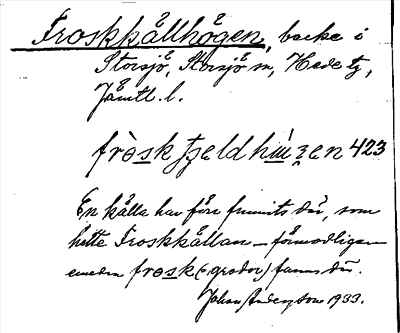 Froskkällhögen, backe i
Storsjö, Storsjö sn, Hede tg,
Jämtl. l.
frösk sjeld hüzen 423
En källa har före funnits där, som
hette Froskkällan – förmodligen
emedan frosk (= grodor) fanns där.
Johan Anderson 1933.